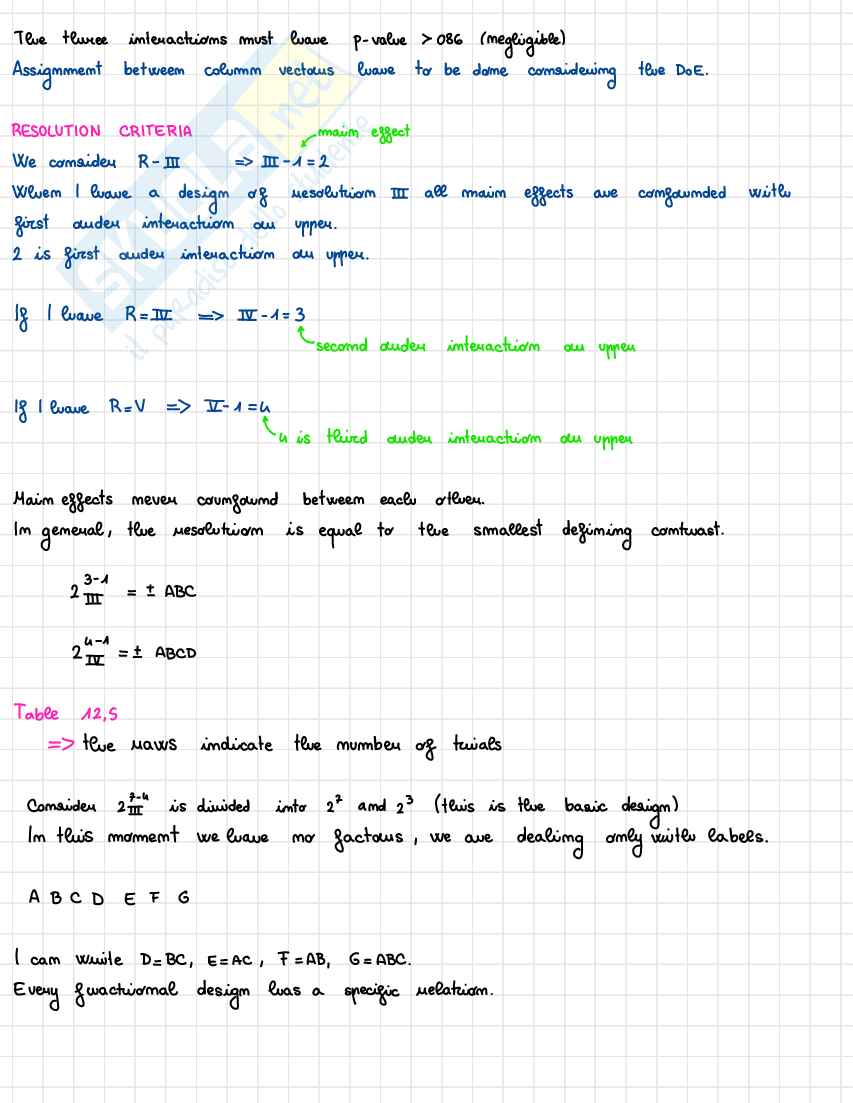 The three interactions must have p-value > 086 (negligible)
Assignment between column vectors have to be done considering the DoE.
RESOLUTION CRITERIA
main effect
We consider R-III => III-1=2
When I have a design of resolution III all main effects are confounded with
first order interaction or upper.
2 is first order interaction or upper.
If I have R=IV => IV-1=3
second order interaction or upper
If I have R=V => V-1=4
4 is third order interaction or upper
Main effects never counfound between each other.
In general, the resolution is equal to the smallest defining contrast.
2 3-1 III = ± ABC
2 4-1 IV = ± ABCD
Table 12,5
=> the raws indicate the number of trials
Consider 2 7-4 III is divided into 2⁷ and 2³ (this is the basic design)
In this moment we have no factors, we are dealing only with labels.
A B C D E F G
I can write D=BC, E=AC, F=AB, G=ABC.
Every fractional design has a specific relation.
SKUOLA.net
il paradiso dello studente